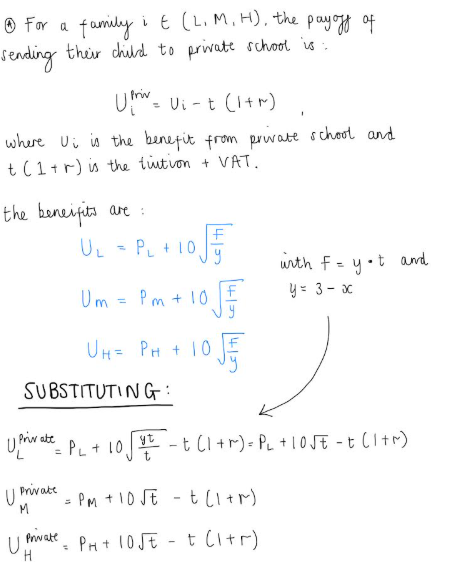 Ⓐ For a family i ∈ (L, M, H), the payoff of
sending their child to private school is :
U_i^Priv = U_i - t (1+r) ,
where U_i is the benefit from private school and
t (1+r) is the tiution + VAT.
the beneifits are :
U_L = P_L + 10 √(F/y)
U_m = P_m + 10 √(F/y)
U_H = P_H + 10 √(F/y)
with F = y • t and
y = 3 - x
SUBSTITUTING :
U_L^Private = P_L + 10 √(yt/t) - t (1+r) = P_L + 10 √t - t (1+r)
U_M^Private = P_M + 10 √t - t (1+r)
U_H^Private = P_H + 10 √t - t (1+r)